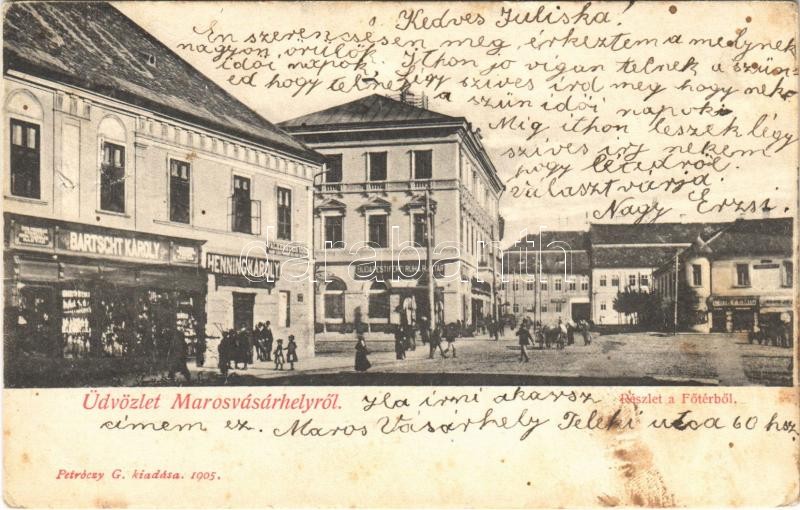 Kedves Juliska!
Én szerencsésen meg érkeztem a melynek
nagyon örülök. Ithon jo vigan telnek a szün
idői napok. légy szives ird meg hogy neked hogy telnek
a szün idői napok.
Mig ithon leszek légy
szives irj nekem
hogy létedről.
Választ várja
Nagy Erzsi.
BARTSCHT KÁROLY
HENNING KÁROLY
darabanth.com
Üdvözlet Marosvásárhelyről.
Részlet a Főtérből.
Ha irni akarsz
címem ez. Maros Vásárhely Teleki utca 60 hsz
Petróczy G. kiadása. 1905.